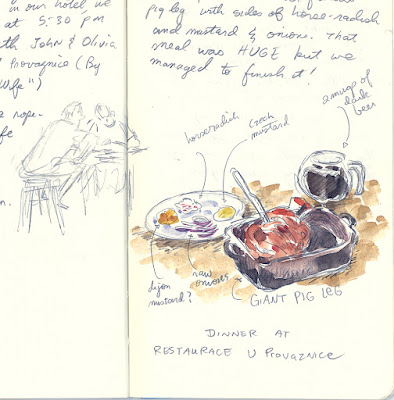 in our hotel we
at 5:30 PM
with John & Olivia
Provaznice (By
Wife")
a rope-
fe
n.
pig leg with sides of horse-radish
and mustard & onions. That
meal was HUGE but we
managed to finish it!
horseradish
Czech
mustard
a mug of
dark
beer
dijon
mustard?
raw
onions
GIANT PIG LEG
DINNER AT
RESTAURACE U PROVAZNICE